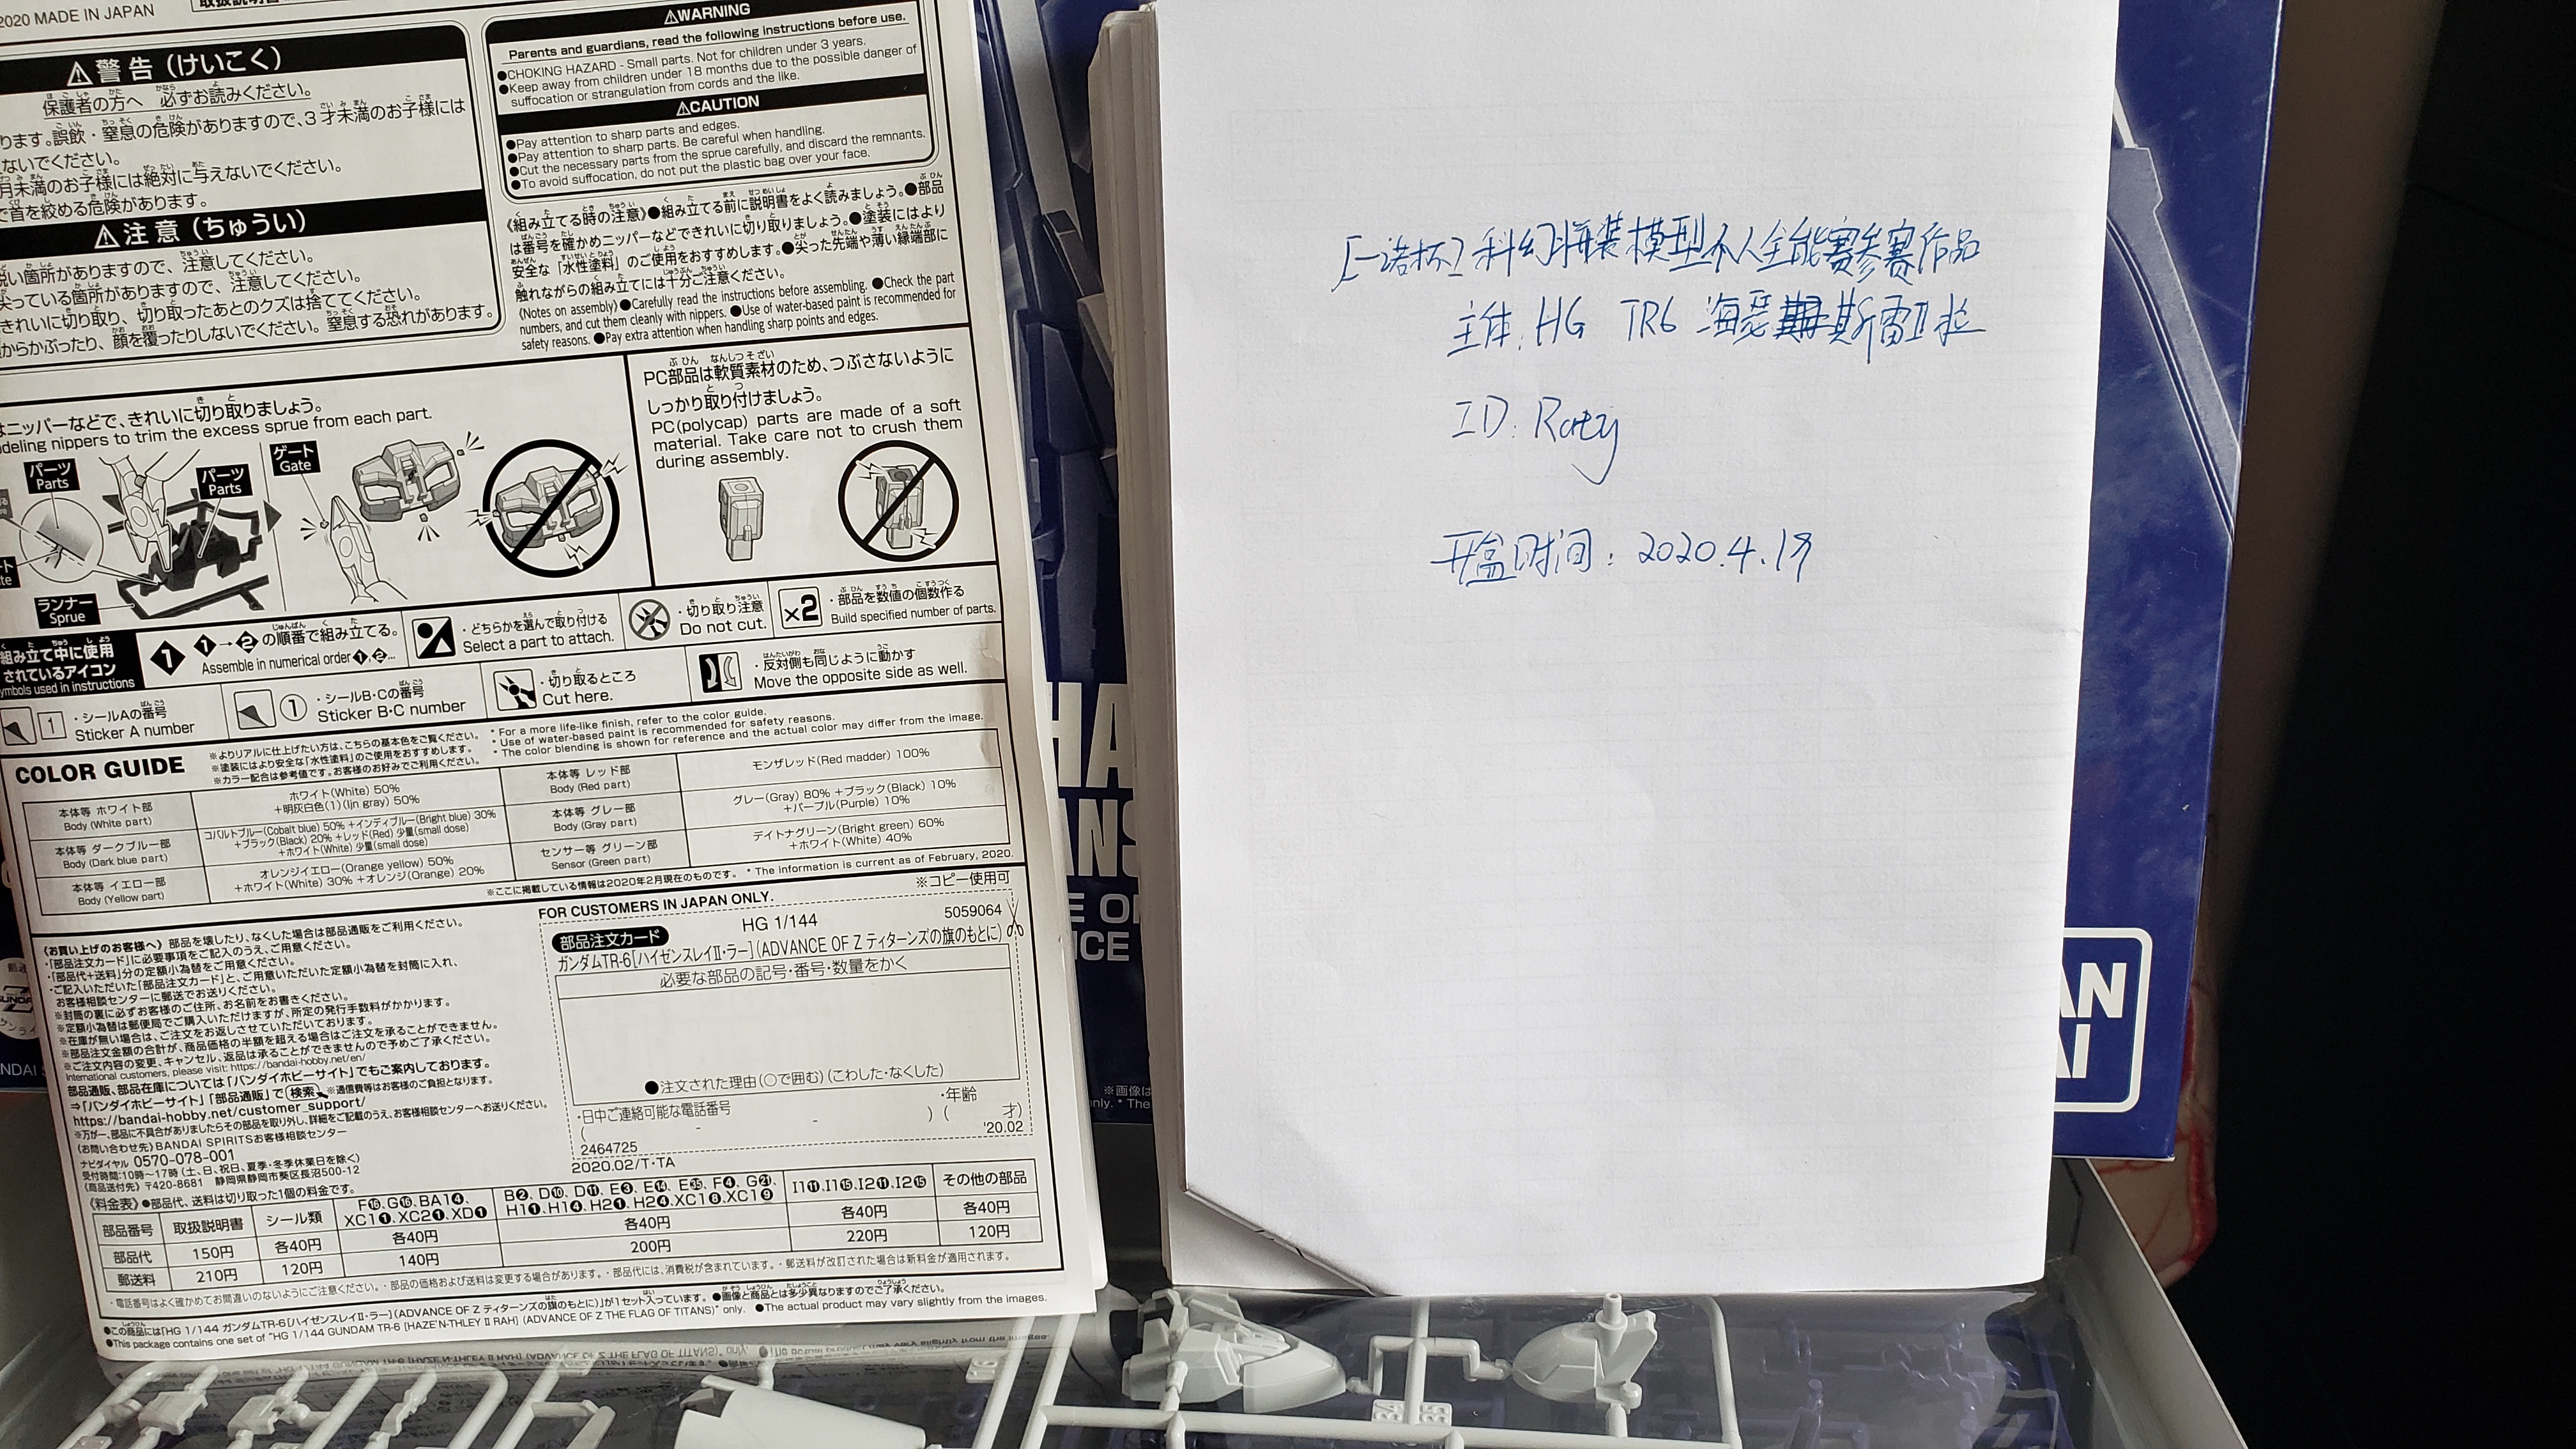 2020 MADE IN JAPAN
警告（けいこく）
保護者の方へ 必ずお読みください。
ります。誤飲・窒息の危険がありますので、3才未満のお子様には
ないでください。
月未満のお子様には絶対に与えないでください。
で首を絞める危険があります。
注意（ちゅうい）
い箇所がありますので、注意してください。
尖っている箇所がありますので、注意してください。
きれいに切り取り、切り取ったあとのクズは捨ててください。
からかぶったり、顔を覆ったりしないでください。窒息する恐れがあります。
WARNING
Parents and guardians, read the following instructions before use.
●CHOKING HAZARD - Small parts. Not for children under 3 years.
●Keep away from children under 18 months due to the possible danger of
suffocation or strangulation from cords and the like.
CAUTION
●Pay attention to sharp parts and edges.
●Pay attention to sharp parts. Be careful when handling.
●Cut the necessary parts from the sprue carefully, and discard the remnants.
●To avoid suffocation, do not put the plastic bag over your face.
《組み立てる時の注意》●組み立てる前に説明書をよく読みましょう。●部品
は番号を確かめニッパーなどできれいに切り取りましょう。●塗装にはより
安全な「水性塗料」のご使用をおすすめします。●尖った先端や薄い縁端部に
触れながらの組み立てには十分ご注意ください。
(Notes on assembly) ●Carefully read the instructions before assembling. ●Check the part
numbers, and cut them cleanly with nippers. ●Use of water-based paint is recommended for
safety reasons. ●Pay extra attention when handling sharp points and edges.
はニッパーなどで、きれいに切り取りましょう。
deling nippers to trim the excess sprue from each part.
パーツ
Parts
パーツ
Parts
ゲート
Gate
ランナー
Sprue
PC部品は軟質素材のため、つぶさないように
しっかり取り付けましょう。
PC(polycap) parts are made of a soft
material. Take care not to crush them
during assembly.
組み立て中に使用
されているアイコン
ymbols used in instructions
1→2の順番で組み立てる。
Assemble in numerical order 1, 2...
・どちらかを選んで取り付ける
Select a part to attach.
・切り取り注意
Do not cut.
×2
・部品を数値の個数作る
Build specified number of parts.
1
・シールAの番号
Sticker A number
①
・シールB・Cの番号
Sticker B・C number
・切り取るところ
Cut here.
・反対側も同じように動かす
Move the opposite side as well.
COLOR GUIDE
※よりリアルに仕上げたい方は、こちらの基本色をご覧ください。
※塗装にはより安全な「水性塗料」のご使用をおすすめします。
※カラー配合は参考値です。お客様のお好みでご利用ください。
* For a more life-like finish, refer to the color guide.
* Use of water-based paint is recommended for safety reasons.
* The color blending is shown for reference and the actual color may differ from the image.
本体等 ホワイト部
Body (White part)
ホワイト(White) 50%
+明灰白色(1)(Ijn gray) 50%
本体等 レッド部
Body (Red part)
モンザレッド(Red madder) 100%
本体等 ダークブルー部
Body (Dark blue part)
コバルトブルー(Cobalt blue) 50% +インディブルー(Bright blue) 30%
+ブラック(Black) 20% +レッド(Red) 少量(small dose)
+ホワイト(White) 少量(small dose)
本体等 グレー部
Body (Gray part)
グレー(Gray) 80% +ブラック(Black) 10%
+パープル(Purple) 10%
本体等 イエロー部
Body (Yellow part)
オレンジイエロー(Orange yellow) 50%
+ホワイト(White) 30% +オレンジ(Orange) 20%
センサー等 グリーン部
Sensor (Green part)
デイトナグリーン(Bright green) 60%
+ホワイト(White) 40%
※ここに掲載している情報は2020年2月現在のものです。 * The information is current as of February, 2020.
《お買い上げのお客様へ》部品を壊したり、なくした場合は部品通販をご利用ください。
・「部品注文カード」に必要事項をご記入のうえ、ご用意ください。
・「部品代+送料」分の定額小為替をご用意ください。
・ご記入いただいた「部品注文カード」と、ご用意いただいた定額小為替を封筒に入れ、
お客様相談センターに郵送でお送りください。
※封筒の裏に必ずお客様のご住所、お名前をお書きください。
※定額小為替は郵便局でご購入いただけますが、所定の発行手数料がかかります。
※在庫が無い場合は、ご注文をお返しさせていただいております。
※部品注文金額の合計が、商品価格の半額を超える場合はご注文を承ることができません。
※ご注文内容の変更、キャンセル、返品は承ることができませんので予めご了承ください。
International customers, please visit: https://bandai-hobby.net/en/
部品通販、部品在庫については「バンダイホビーサイト」でもご案内しております。
⇒「バンダイホビーサイト」「部品通販」で 検索 ※通信費等はお客様のご負担となります。
https://bandai-hobby.net/customer_support/
※万が一、部品に不具合がありましたらその部品を取り外し、詳細をご記載のうえ、お客様相談センターへお送りください。
(お問い合わせ先) BANDAI SPIRITSお客様相談センター
ナビダイヤル 0570-078-001
受付時間:10時～17時(土、日、祝日、夏季・冬季休業日を除く)
(商品送付先) 〒420-8681 静岡県静岡市葵区長沼500-12
※コピー使用可
FOR CUSTOMERS IN JAPAN ONLY.
部品注文カード
HG 1/144
5059064
ガンダムTR-6[ハイゼンスレイⅡ・ラー](ADVANCE OF Z ティターンズの旗のもとに)
必要な部品の記号・番号・数量をかく
●注文された理由(○で囲む)(こわした・なくした)
・日中ご連絡可能な電話番号
・年齢
( - - ) ( 才)
2464725
'20.02
2020.02/T・TA
《料金表》●部品代、送料は切り取った1個の料金です。
部品番号 取扱説明書 シール類 F⑯、G⑯、BA1④、XC1①、XC2①、XD① B②、D⑩、D⑪、E③、E⑭、E㉟、F④、G㉑、H1①、H1④、H2①、H2④、XC1⑧、XC1⑨ I1⑪、I1⑮、I2⑪、I2⑮ その他の部品
部品代 150円 各40円 各40円 各40円 各40円 各40円
郵送料 210円 120円 140円 200円 220円 120円
・電話番号はよく確かめてお間違いのないようにご注意ください。・部品の価格および送料は変更する場合があります。・部品代には、消費税が含まれています。・郵送料が改訂された場合は新料金が適用されます。
●この商品には「HG 1/144 ガンダムTR-6[ハイゼンスレイⅡ・ラー](ADVANCE OF Z ティターンズの旗のもとに)」が1セット入っています。●画像と商品とは多少異なりますのでご了承ください。
●This package contains one set of "HG 1/144 GUNDAM TR-6 [HAZE'N-THLEY II RAH] (ADVANCE OF Z THE FLAG OF TITANS)" only. ●The actual product may vary slightly from the images.
[一诺杯]科幻拼装模型个人全能赛参赛作品
主体:HG TR6 海瑟斯雷Ⅱ拉
ID: Raty
开盒时间:2020.4.19
※画像は
nly. * The
AN
AI
34
33